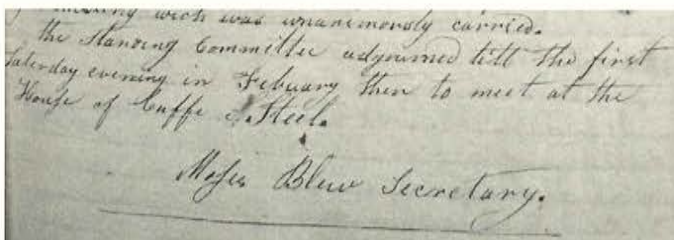 meeting wich was unanimously carried.
the Standing Committee adjourned till the first
Saturday evening in Febuary then to meet at the
House of Cuffe J. Steel.
Moses Blew Secretary.